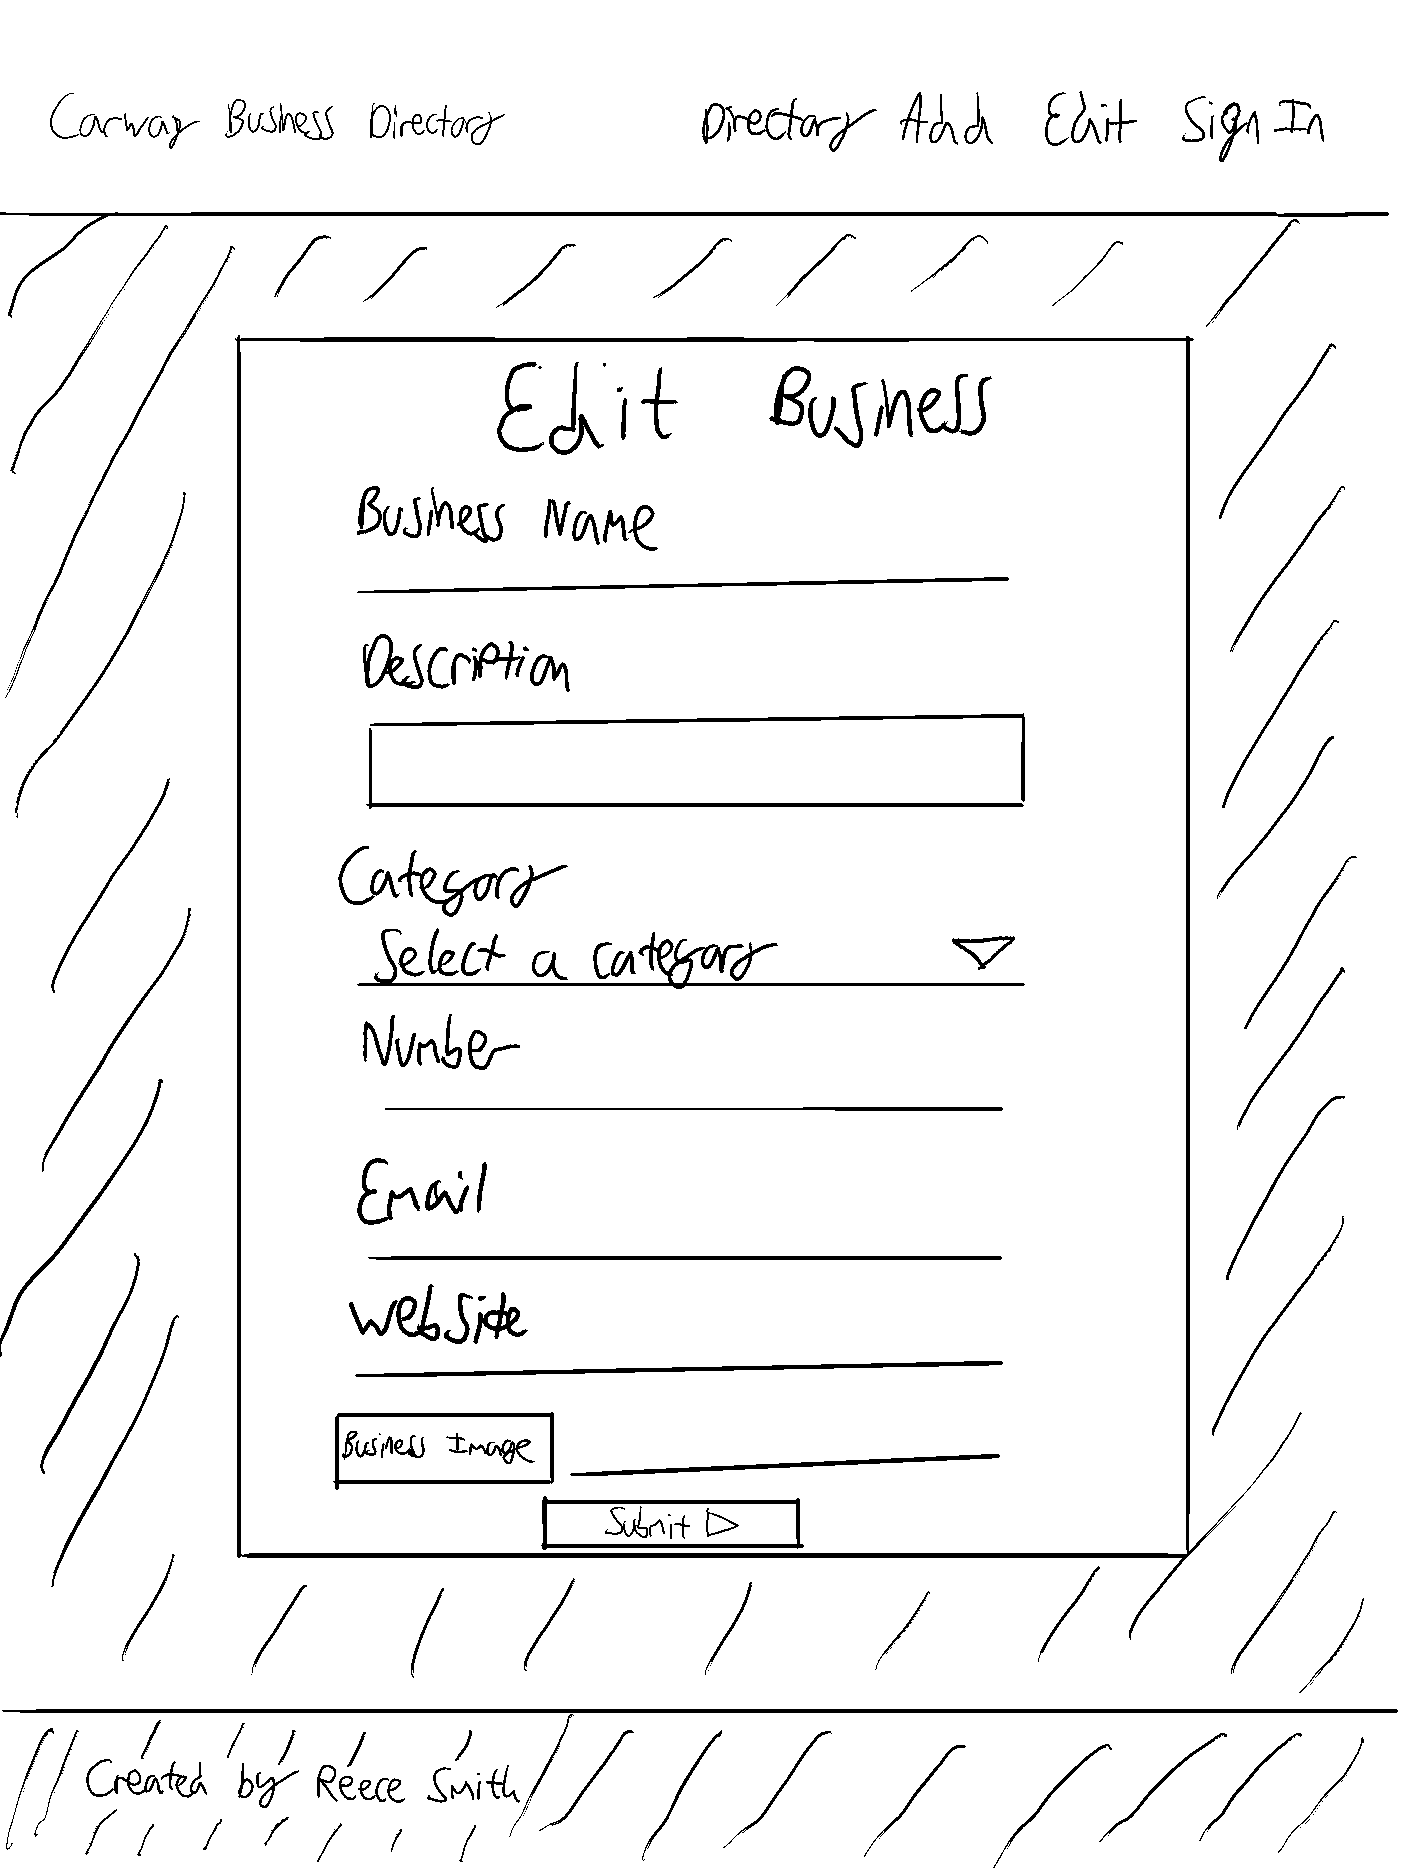 Carway Business Directory
Directory Add Edit Sign In
Edit Business
Business Name
Description
Category
Select a category
Number
Email
Website
Business Image
Submit
Created by Reece Smith